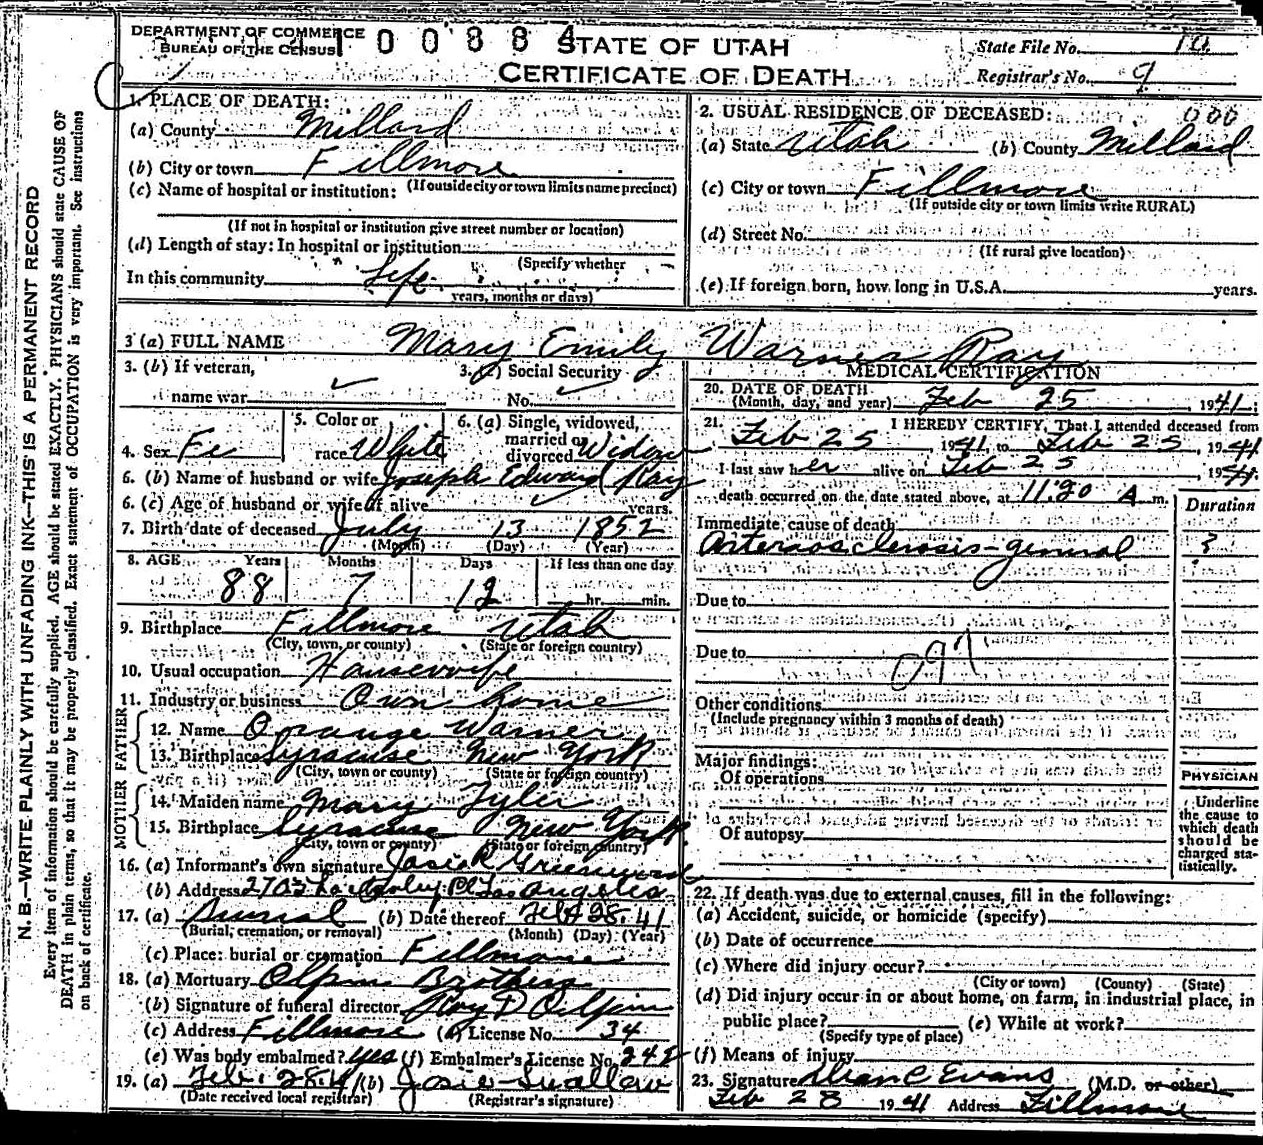 DEPARTMENT OF COMMERCE
BUREAU OF THE CENSUS
100884
STATE OF UTAH
CERTIFICATE OF DEATH
State File No. 10
Registrar's No. 9
N. B.—WRITE PLAINLY WITH UNFADING INK—THIS IS A PERMANENT RECORD
Every item of information should be carefully supplied. AGE should be stated EXACTLY. PHYSICIANS should state CAUSE OF
DEATH in plain terms, so that it may be properly classified. Exact statement of OCCUPATION is very important. See instructions
on back of certificate.
1. PLACE OF DEATH:
(a) County Millard
(b) City or town Fillmore
(If outside city or town limits name precinct)
(c) Name of hospital or institution:
(If not in hospital or institution give street number or location)
(d) Length of stay: In hospital or institution
(Specify whether
In this community Life
years, months or days)
2. USUAL RESIDENCE OF DECEASED: 000
(a) State Utah (b) County Millard
(c) City or town Fillmore
(If outside city or town limits write RURAL)
(d) Street No.
(If rural give location)
(e) If foreign born, how long in U.S.A. years.
3 (a) FULL NAME Mary Emily Warner Ray
3. (b) If veteran, name war
3. (c) Social Security No.
4. Sex Fe
5. Color or race White
6. (a) Single, widowed, married or divorced Widow
6. (b) Name of husband or wife Joseph Edward Ray
6. (c) Age of husband or wife if alive years.
7. Birth date of deceased July 13 1852
(Month) (Day) (Year)
8. AGE Years Months Days If less than one day
88 7 12 hr. min.
9. Birthplace Fillmore Utah
(City, town, or county) (State or foreign country)
10. Usual occupation Housewife
11. Industry or business Own home
FATHER
12. Name Orange Warner
13. Birthplace Syracuse New York
(City, town or county) (State or foreign country)
MOTHER
14. Maiden name Mary Tyler
15. Birthplace Syracuse New York
(City, town or county) (State or foreign country)
16. (a) Informant's own signature Josie R Greenwood
(b) Address Pl Los Angeles
17. (a) Burial (b) Date thereof Feb 28. 41
(Burial, cremation, or removal) (Month) (Day) (Year)
(c) Place: burial or cremation Fillmore
18. (a) Mortuary Olpin Brothers
(b) Signature of funeral director Roy D Olpin
(c) Address Fillmore (d) License No. 34
(e) Was body embalmed? Yes (f) Embalmer's License No. 242
19. (a) Feb. 28. 41 (b) Josie Swallow
(Date received local registrar) (Registrar's signature)
MEDICAL CERTIFICATION
20. DATE OF DEATH
(Month, day, and year) Feb 25, 1941;
21. I HEREBY CERTIFY, That I attended deceased from
Feb 25 1941, to Feb 25, 1941
I last saw her alive on Feb 25 1941.
death occurred on the date stated above, at 11:20 A m.
Duration
Immediate cause of death
Arteraosclerosis-general ?
Due to
Due to
097
Other conditions
(Include pregnancy within 3 months of death)
Major findings:
Of operations
Of autopsy
PHYSICIAN
Underline
the cause to
which death
should be
charged sta-
tistically.
22. If death was due to external causes, fill in the following:
(a) Accident, suicide, or homicide (specify)
(b) Date of occurrence
(c) Where did injury occur?
(City or town) (County) (State)
(d) Did injury occur in or about home, on farm, in industrial place, in
public place? (e) While at work?
(Specify type of place)
(f) Means of injury
23. Signature Dean C Evans (M.D. or other)
Feb 28 1941 Address Fillmore